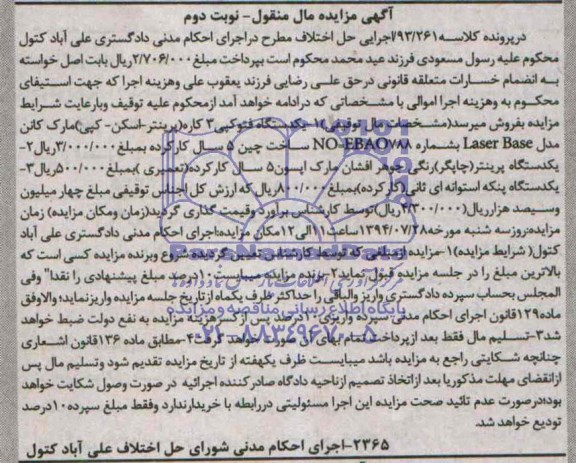 آگهی مزایده مال منقول- نوبت دوم
درپرونده کلاسه ۹۳/۲۶۱/اجرایی حل اختلاف مطرح دراجرای احکام مدنی دادگستری علی آباد کتول
محکوم علیه رسول مسعودی فرزند عید محمد محکوم است بپرداخت مبلغ ۲/۷۰۶/۰۰۰ریال بابت اصل خواسته
به انضمام خسارات متعلقه قانونی درحق علی رضایی فرزند یعقوب علی وهزینه اجرا که جهت استیفای
محکوم به وهزینه اجرا اموالی با مشخصاتی که درادامه خواهد آمد ازمحکوم علیه توقیف وبارعایت شرایط
مزایده بفروش میرسد(مشخصات مال توقیفی)۱-یکدستگاه فتوکپی۳ کاره(پرینتر-اسکن- کپی)مارک کانن
مدل Laser Base بشماره NO-EBAO۷۸۸ ساخت چین ۵ سال کارکرده بمبلغ۳/۰۰۰/۰۰۰ریال۲-
یکدستگاه پرینتر(چاپگر)رنگی جوهر افشان مارک اپسون۵ سال کارکرده(تعمیری )بمبلغ۵۰۰/۰۰۰ریال۳-
یکدستگاه پنکه استوانه ای ثانی(کارکرده)بمبلغ۸۰۰/۰۰۰ریال که ارزش کل اجناس توقیفی مبلغ چهار میلیون
وسیصد هزارریال(۴/۳۰۰/۰۰۰ریال)توسط کارشناس برآورد وقیمت گذاری گردید(زمان ومکان مزایده) زمان
مزایده:روزسه شنبه مورخه۱۳۹۴/۰۷/۲۸ساعت۱۱الی۱۲مکان مزایده:اجرای احکام مدنی دادگستری علی آباد
کتول( شرایط مزایده)۱-مزایده ازمبلغی که توسط کارشناس تعیین گردیده شروع وبرنده مزایده کسی است که
بالاترین مبلغ را در جلسه مزایده قبول نماید۲-برنده مزایده میبایست۱۰درصد مبلغ پیشنهادی را نقدا" وفی
المجلس بحساب سپرده دادگستری واریز والباقی را حداکثر ظرف یکماه ازتاریخ جلسه مزایده واریزنماید؛ والاوفق
ماده۱۲۹قانون اجرای احکام مدنی سپرده واریزی پس ازکسرهزینه مزایده به نفع دولت ضبط خواهد
شد۳-تسلیم مال فقط بعد ازپرداخت تمام بهای آن صورت خواهد گرفت۴-مطابق ماده ۱۳۶قانون اشعاری
چنانچه شکایتی راجع به مزایده باشد میبایست ظرف یکهفته از تاریخ مزایده تقدیم شود وتسلیم مال پس
ازانقضای مهلت مذکوریا بعد ازاتخاذ تصمیم ازناحیه دادگاه صادرکننده اجرائیه درصورت وصول شکایت خواهد
بود؛درصورت عدم تائید صحت مزایده این اجرا مسئولیتی دررابطه با خریدارندارد وفقط مبلغ سپرده۱۰درصد
تودیع خواهد شد.
۲۳۶۵-اجرای احکام مدنی شورای حل اختلاف علی آباد کتول
ParsNamadData
پایگاه اطلاع رسانی مناقصه و مزایده
۰۲۱-۸۸۳۴۹۶۷۰-۵